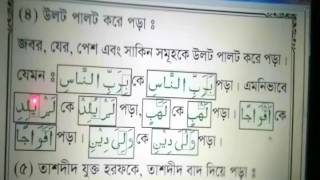 (৪) উলট পালট করে পড়া :
জবর, যের, পেশ এবং সাকিন সমূহকে উলট পালট করে পড়া।
যেমন : بِرَبِّ النَّاسِ কে بِرَبِّ النَّاسِ পড়া। এমনিভাবে
لَمْ يَلِدْ কে لَمْ يَلِدْ পড়া, لَهَبٍ কে لَهَبٍ পড়া। اَفْوَاجًا কে
اَفْوَاجًا পড়া। وَلِيَ دِيْنِ কে وَلِيَ دِيْنِ পড়া।
(৫) তাশদীদ যুক্ত হরফকে, তাশদীদ বাদ দিয়ে পড়া :